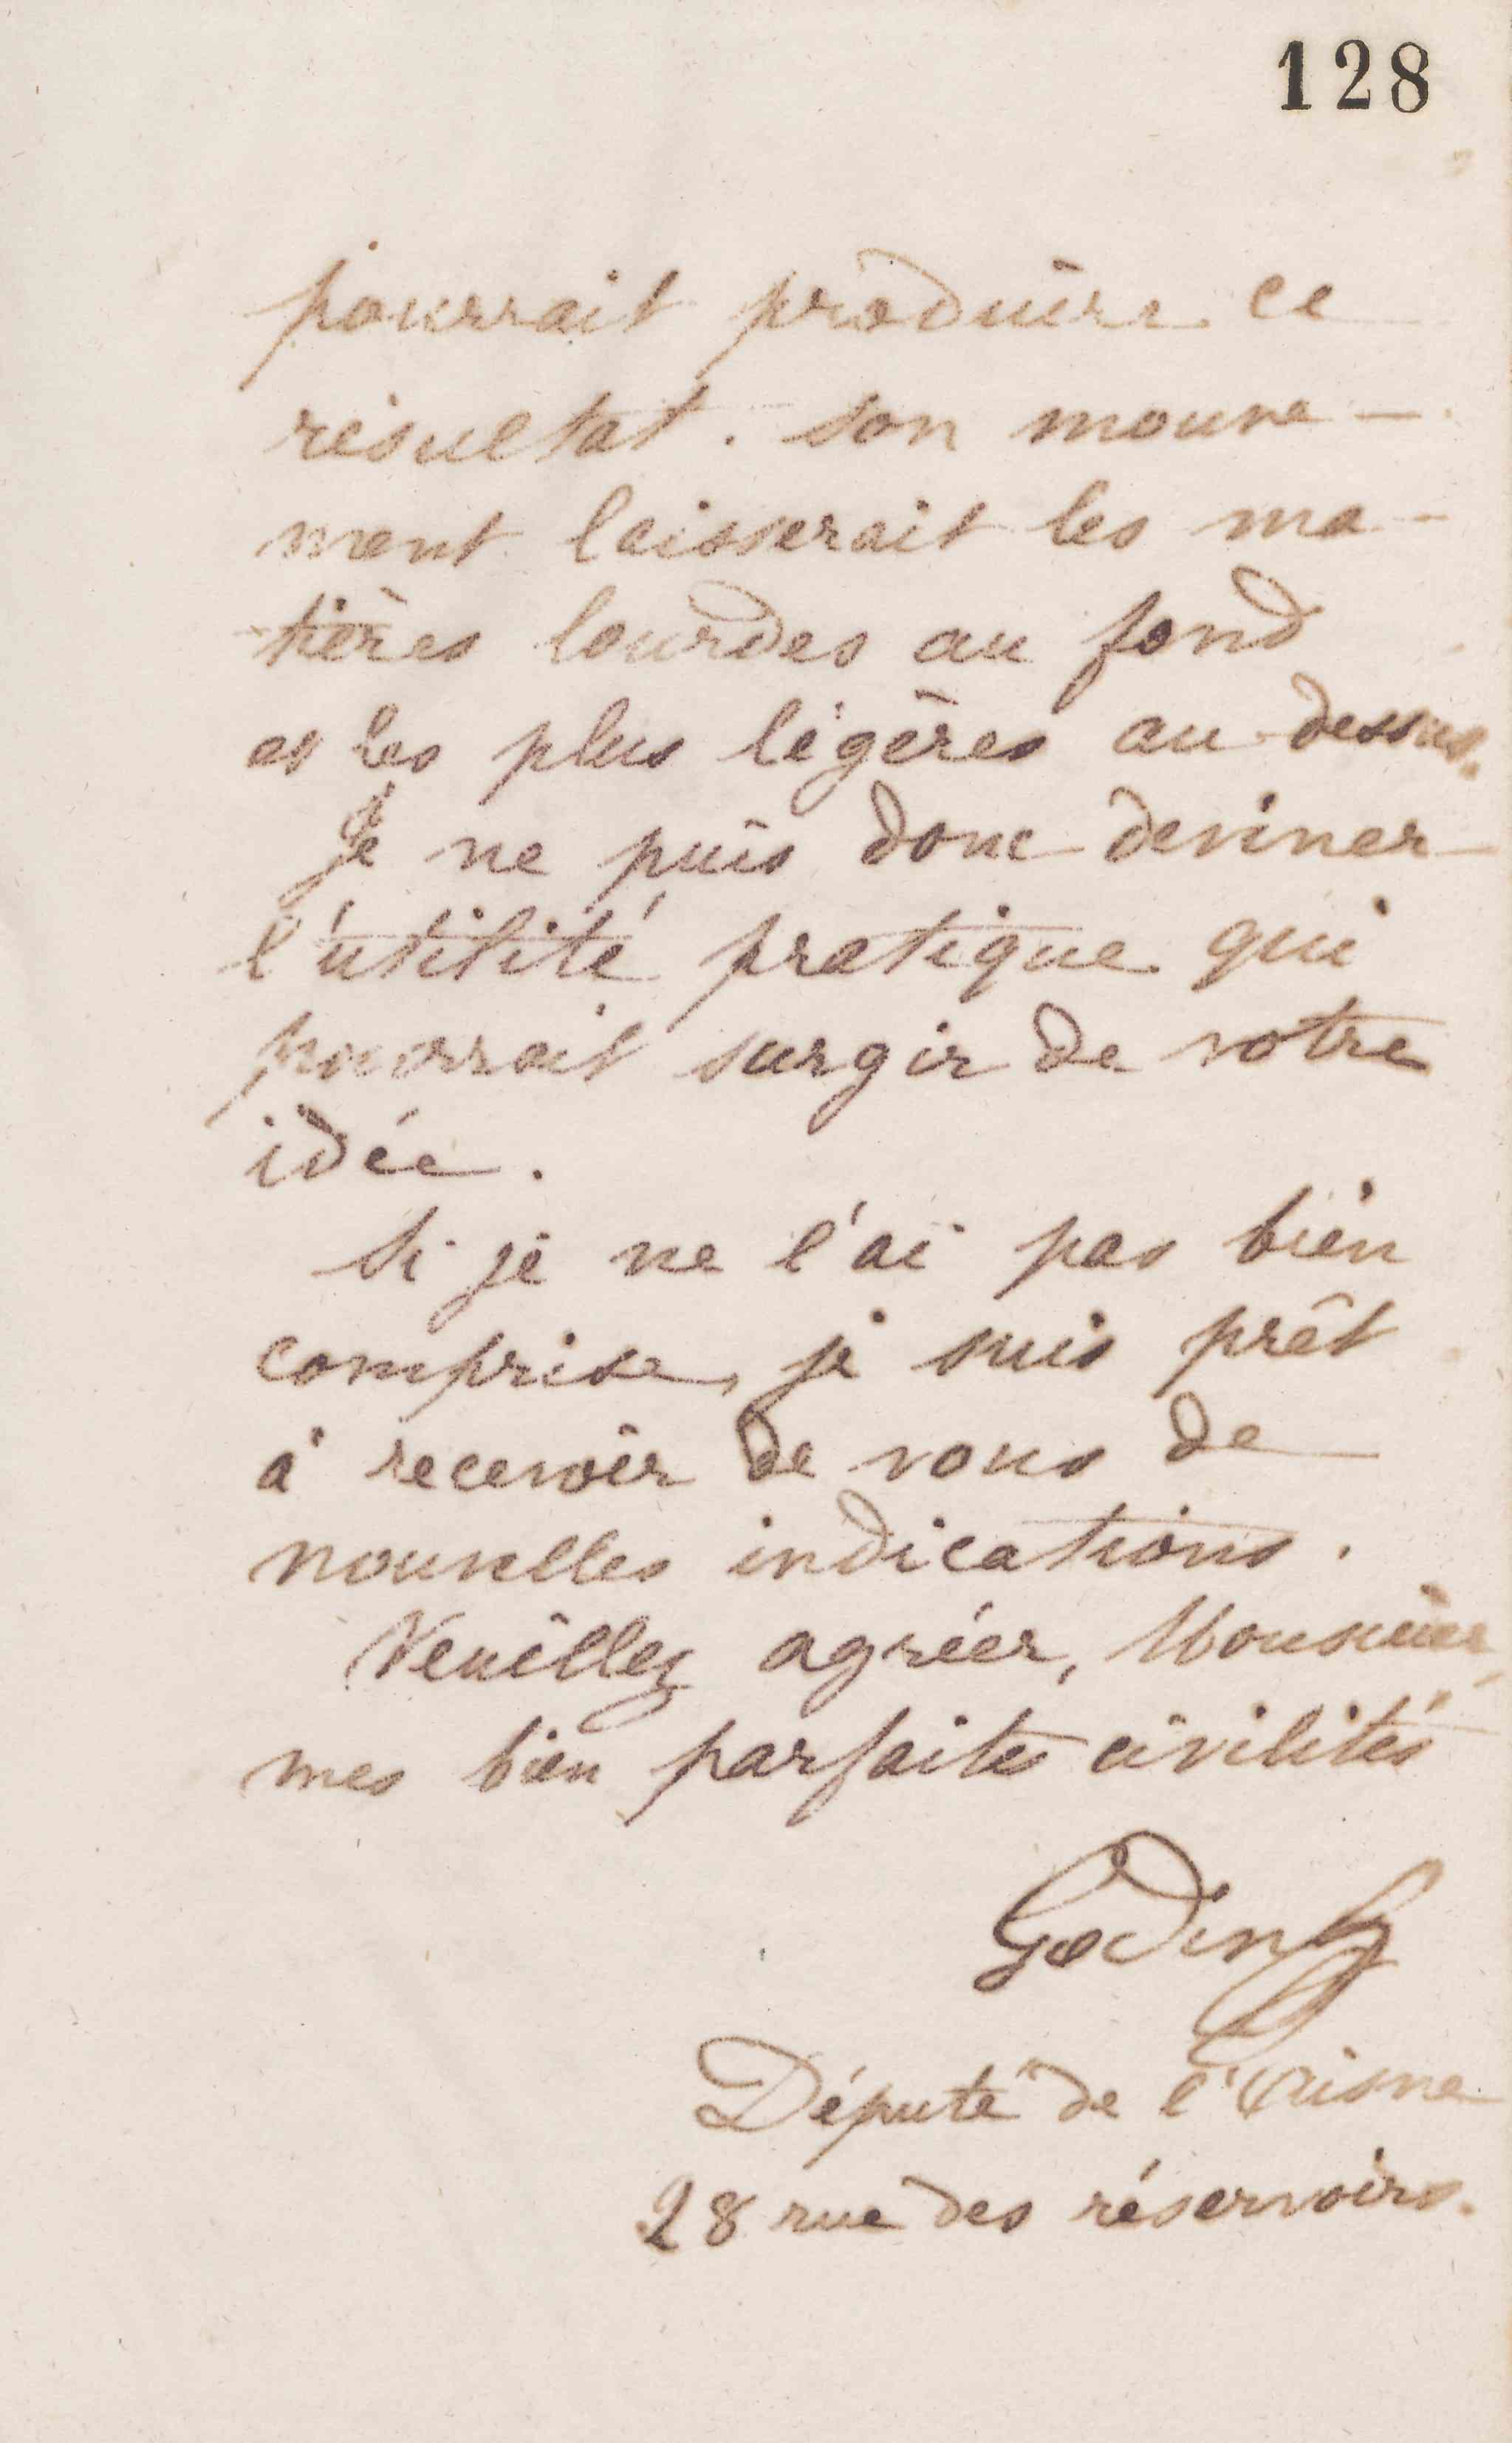 128
pourrait produire ce
résultat. son mouve-
ment laisserait les ma-
tières lourdes au fond
et les plus légères au dessus.
Je ne puis donc deviner
l'utilité pratique qui
pourrait surgir de votre
idée.
Si je ne l'ai pas bien
comprise, je suis prêt
à recevoir de vous de
nouvelles indications.
Veuillez agréer, Monsieur,
mes bien parfaites civilités
Godin
Député de l'Aisne
28 rue des réservoirs.